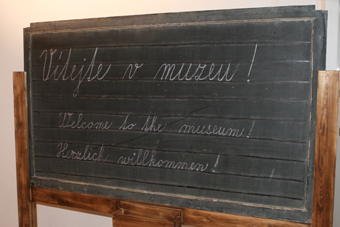 Vítejte v muzeu!
Welcome to the museum!
Herzlich willkommen!